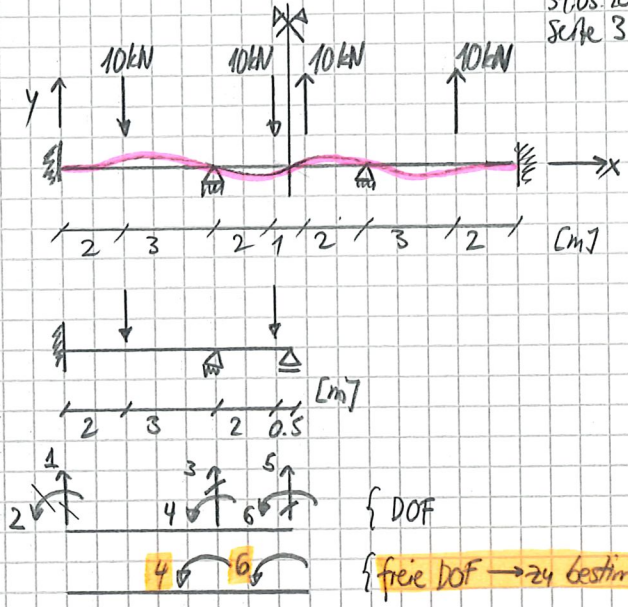 Seite 3
10kN 10kN 10kN 10kN
y
x
2 3 2 1 2 3 2 [m]
[m]
2 3 2 0.5
1 3 5
2 4 6 { DOF
4 6 { freie DOF → zu